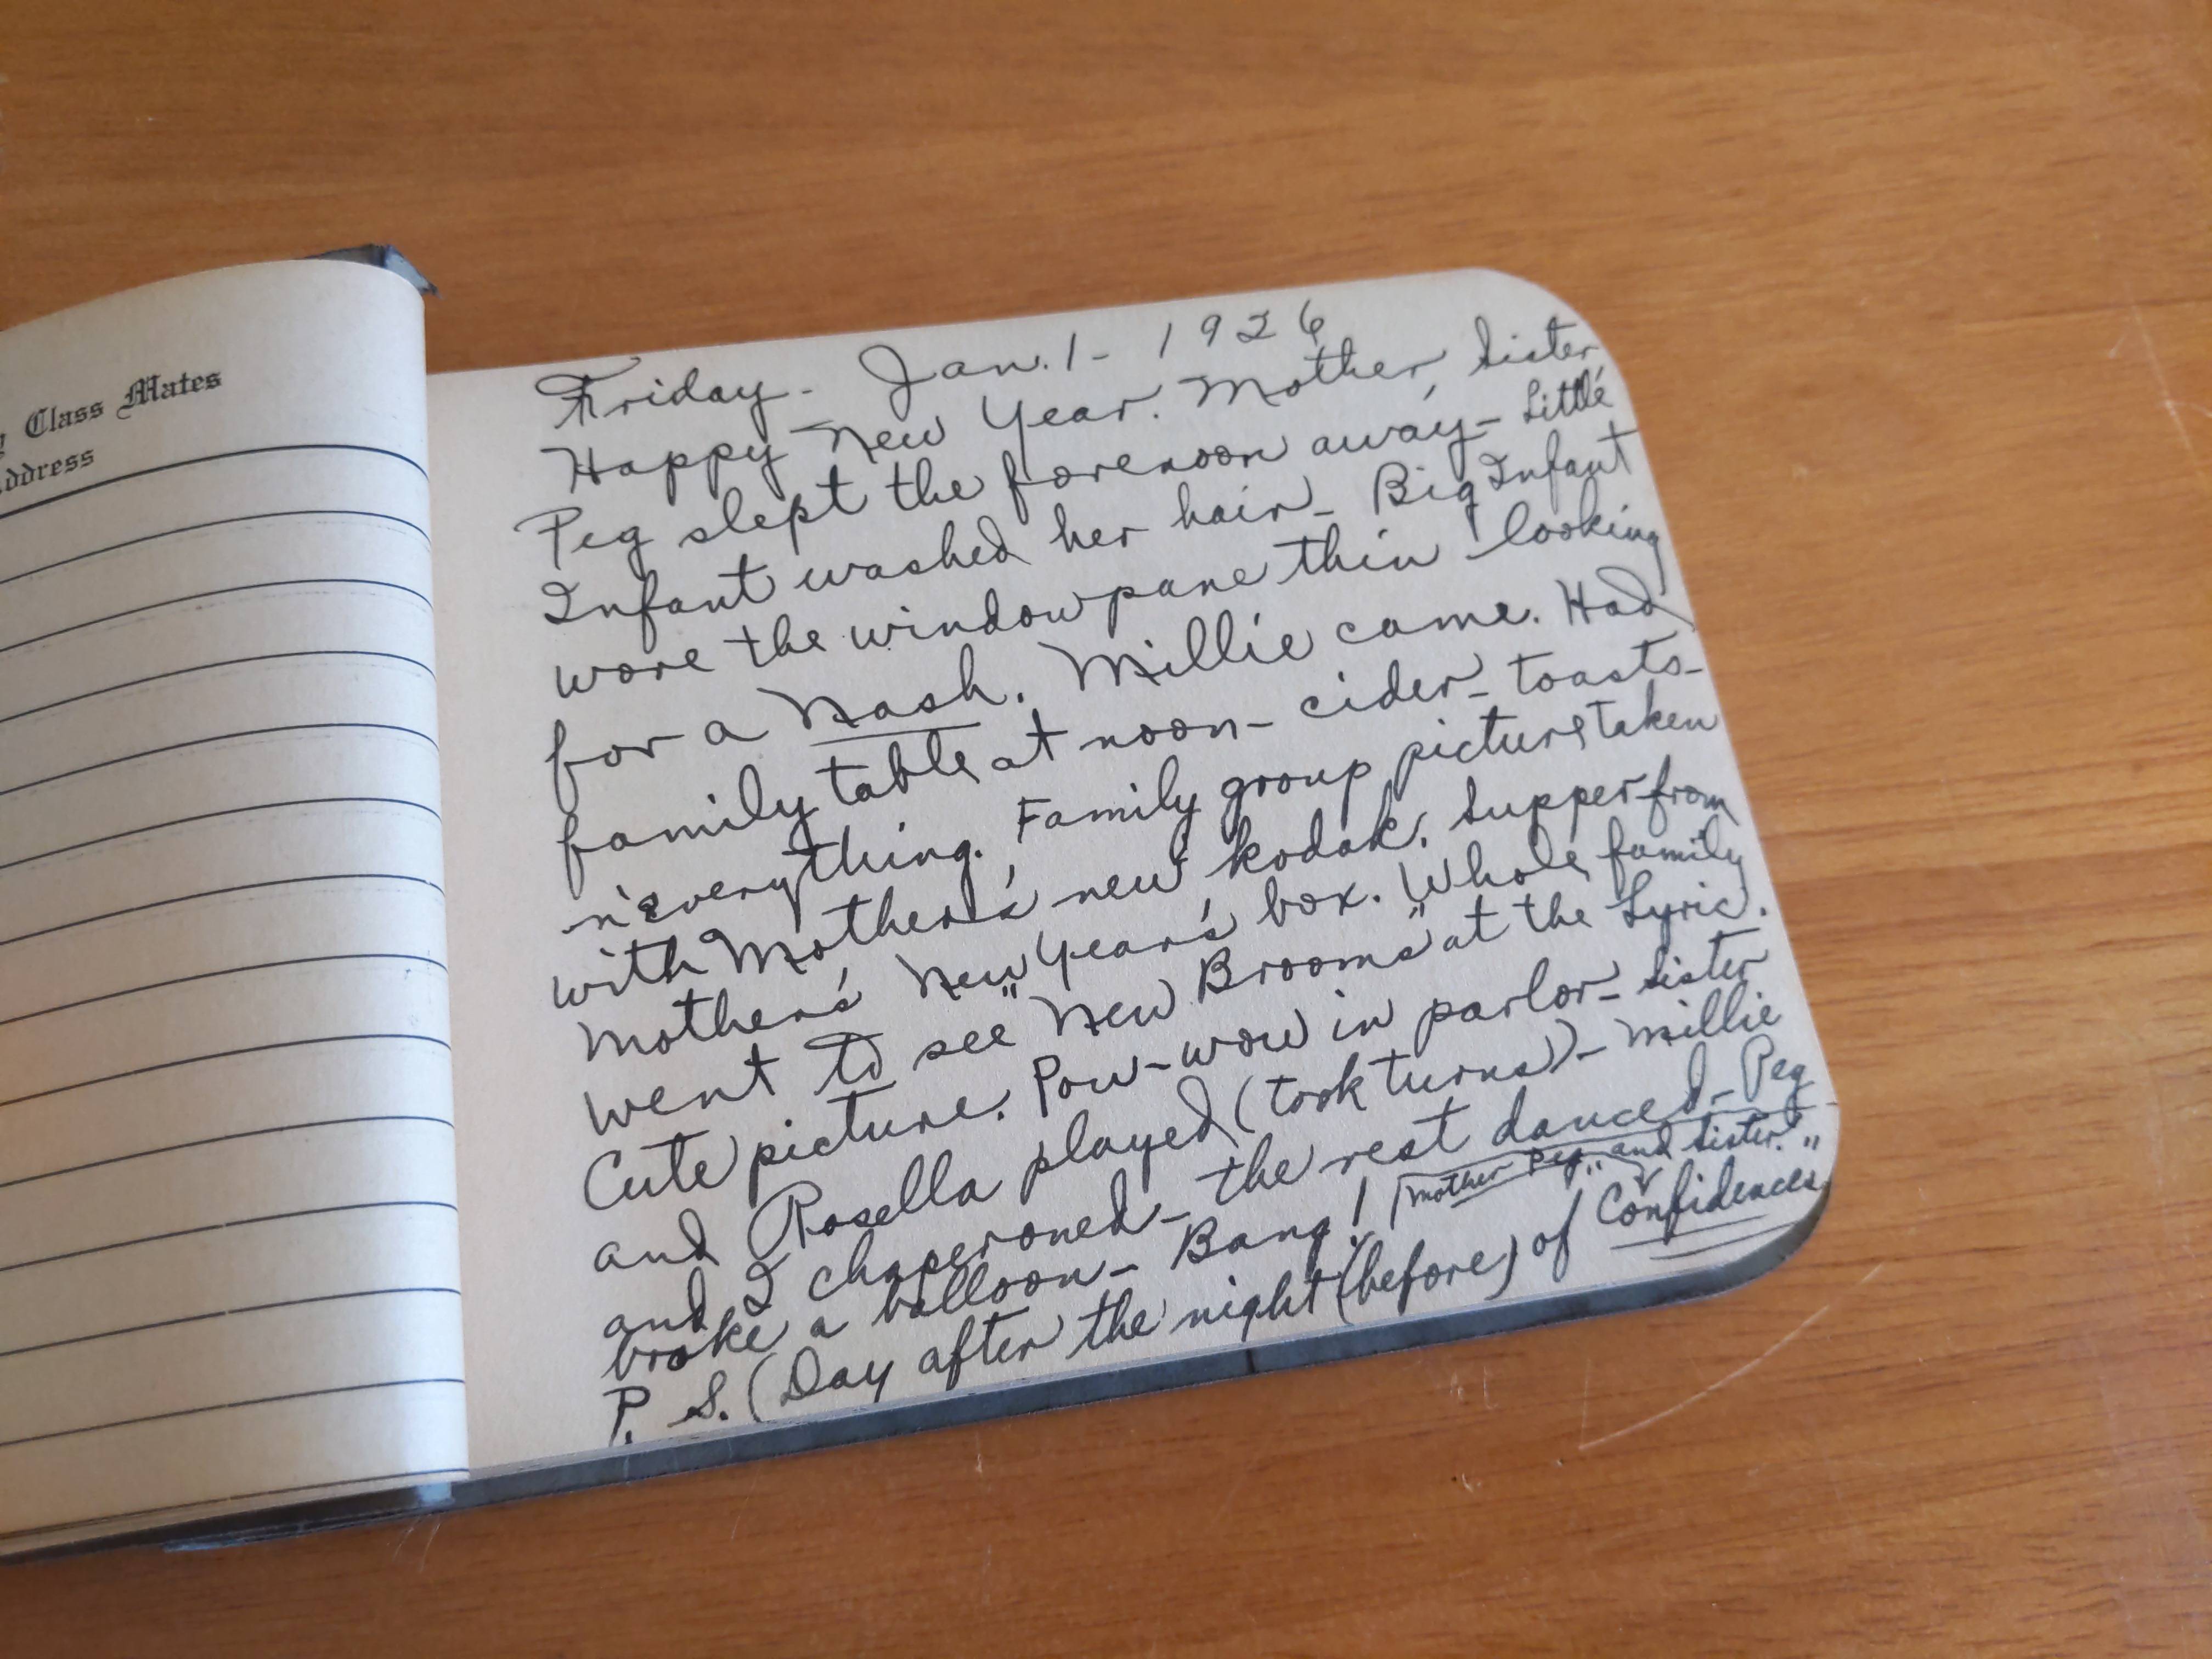 Class Mates
Address
Friday - Jan. 1 - 1926
Happy New Year. Mother, Sister,
Peg slept the forenoon away - Little
Infant washed her hair - Big Infant
wore the windowpane thin looking
for a Nash. Millie came. Had
family table at noon - cider - toasts -
n'everything. Family group picture taken
with Mother's new kodak. Supper from
Mother's New Year's box. Whole family
went to see "New Brooms" at the Lyric.
Cute picture. Pow-wow in parlor - Sister
and Rosella played (took turns) - Millie
and I chaperoned - the rest danced - Peg
broke a balloon - Bang!
mother Peg and Sister.
P. S. (Day after the night (before) of "Confidences"